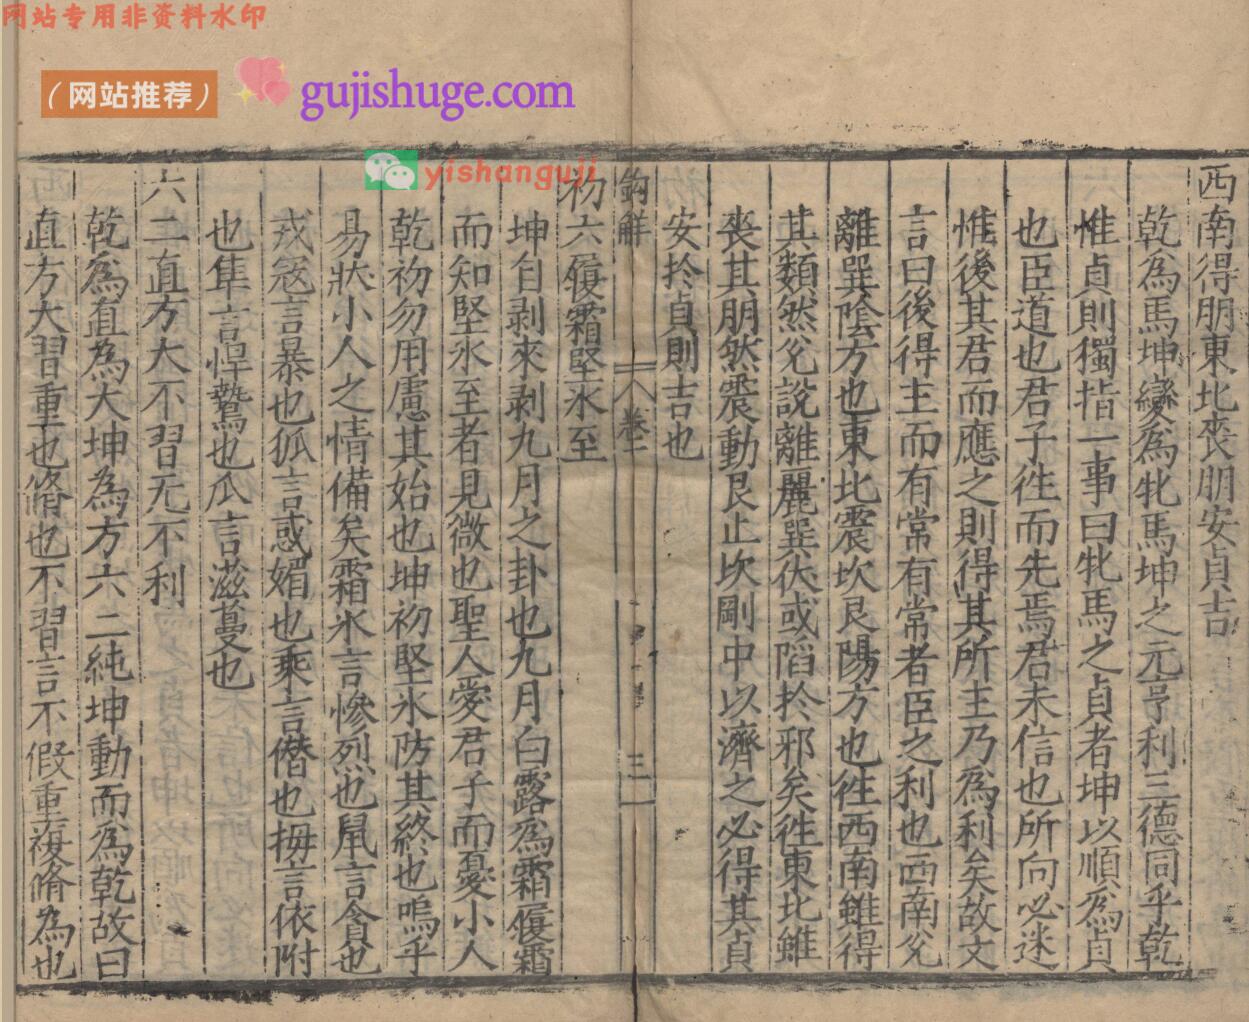 网站专用非资料水印
（网站推荐）
gujishuge.com
yishanguji
西南得朋東北丧朋安貞吉
乾為馬坤變為牝馬坤之元亨利三德同乎乾
惟貞則獨指一事曰牝馬之貞者坤以順為貞
也臣道也君子徃而先焉君未信也所向必迷
惟後其君而應之則得其所主乃為利矣故文
言曰後得主而有常有常者臣之利也西南兊
離巽陰方也東北震坎艮陽方也徃西南雖得
其類然兊說離麗巽伏或䧟扵邪矣徃東北雖
丧其朋然震動艮止坎剛中以濟之必得其貞
安扵貞則吉也
鈎解
卷二
三
初六履霜堅氷至
坤自剥來剥九月之卦也九月白露為霜履霜
而知堅氷至者見微也聖人愛君子而憂小人
乾初勿用慮其始也坤初堅氷防其終也嗚乎
易狀小人之情備矣霜氷言慘烈也鼠言貪也
戎冦言暴也狐言惑媚也乘言僭也拇言依附
也隼言悍鷙也瓜言滋蔓也
六二直方大不習无不利
乾為直為大坤為方六二純坤動而為乾故曰
直方大習重也脩也不習言不假重複脩為也